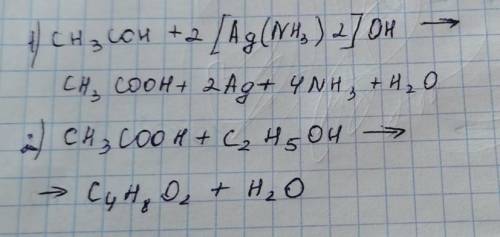 1) CH₃COH + 2 [Ag(NH₃)2]OH →
CH₃ COOH + 2Ag + 4NH₃ + H₂O
2) CH₃COOH + C₂H₅OH →
→ C₄H₈O₂ + H₂O